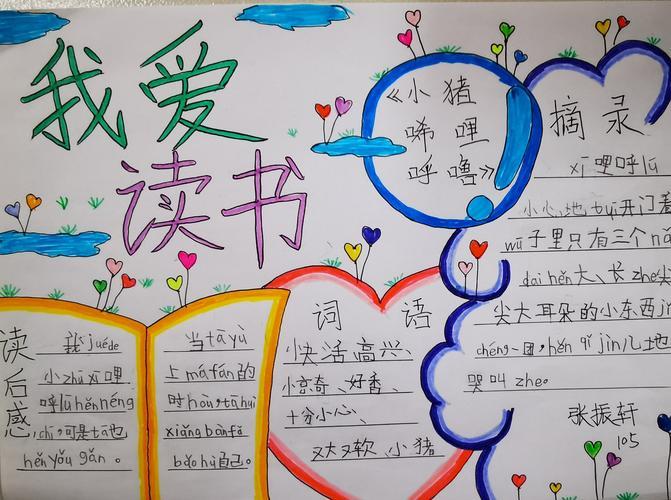 我爱
读书
《小猪
唏哩
呼噜》
摘录
xī哩呼lū
小心地 tuī开门看
wū子里只有三个nǎ
dai hěn大、长zhe
尖大耳朵的小东西jǐn
chéng一团,hěn qǐ jìn儿地
哭叫zhe。
张振轩
105
读后感
我juéde
小zhū xī哩
呼lū hěn néng
chī,可是tā也
hěn yǒu gǎn 。
当tā yù
上má fán的
时hòu,tā huì
xiǎng bàn fǎ
bǎo hù自己。
词语
快活 高兴、
惊奇、好香、
十分小心、
又大又软、小猪